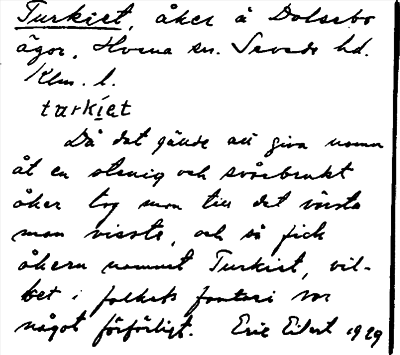 Turkiet, åker å Dolsebo
ägor, Hvena sn. Sevede hd.
Klm. l.
turkiet
Då det gällde att giva namn
åt en stenig och svårbrukt
åker tog man till det värsta
man visste, och så fick
åkern namnet Turkiet, vil-
ket i folkets fantasi var
något förfärligt. Eric Eilert 1929